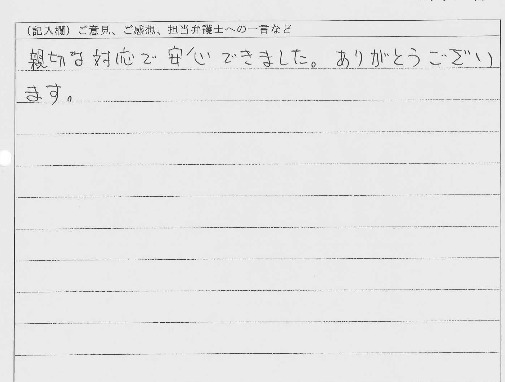 (記入欄) ご意見、ご感想、担当弁護士への一言など
親切な対応で安心できました。ありがとうござい
ます。